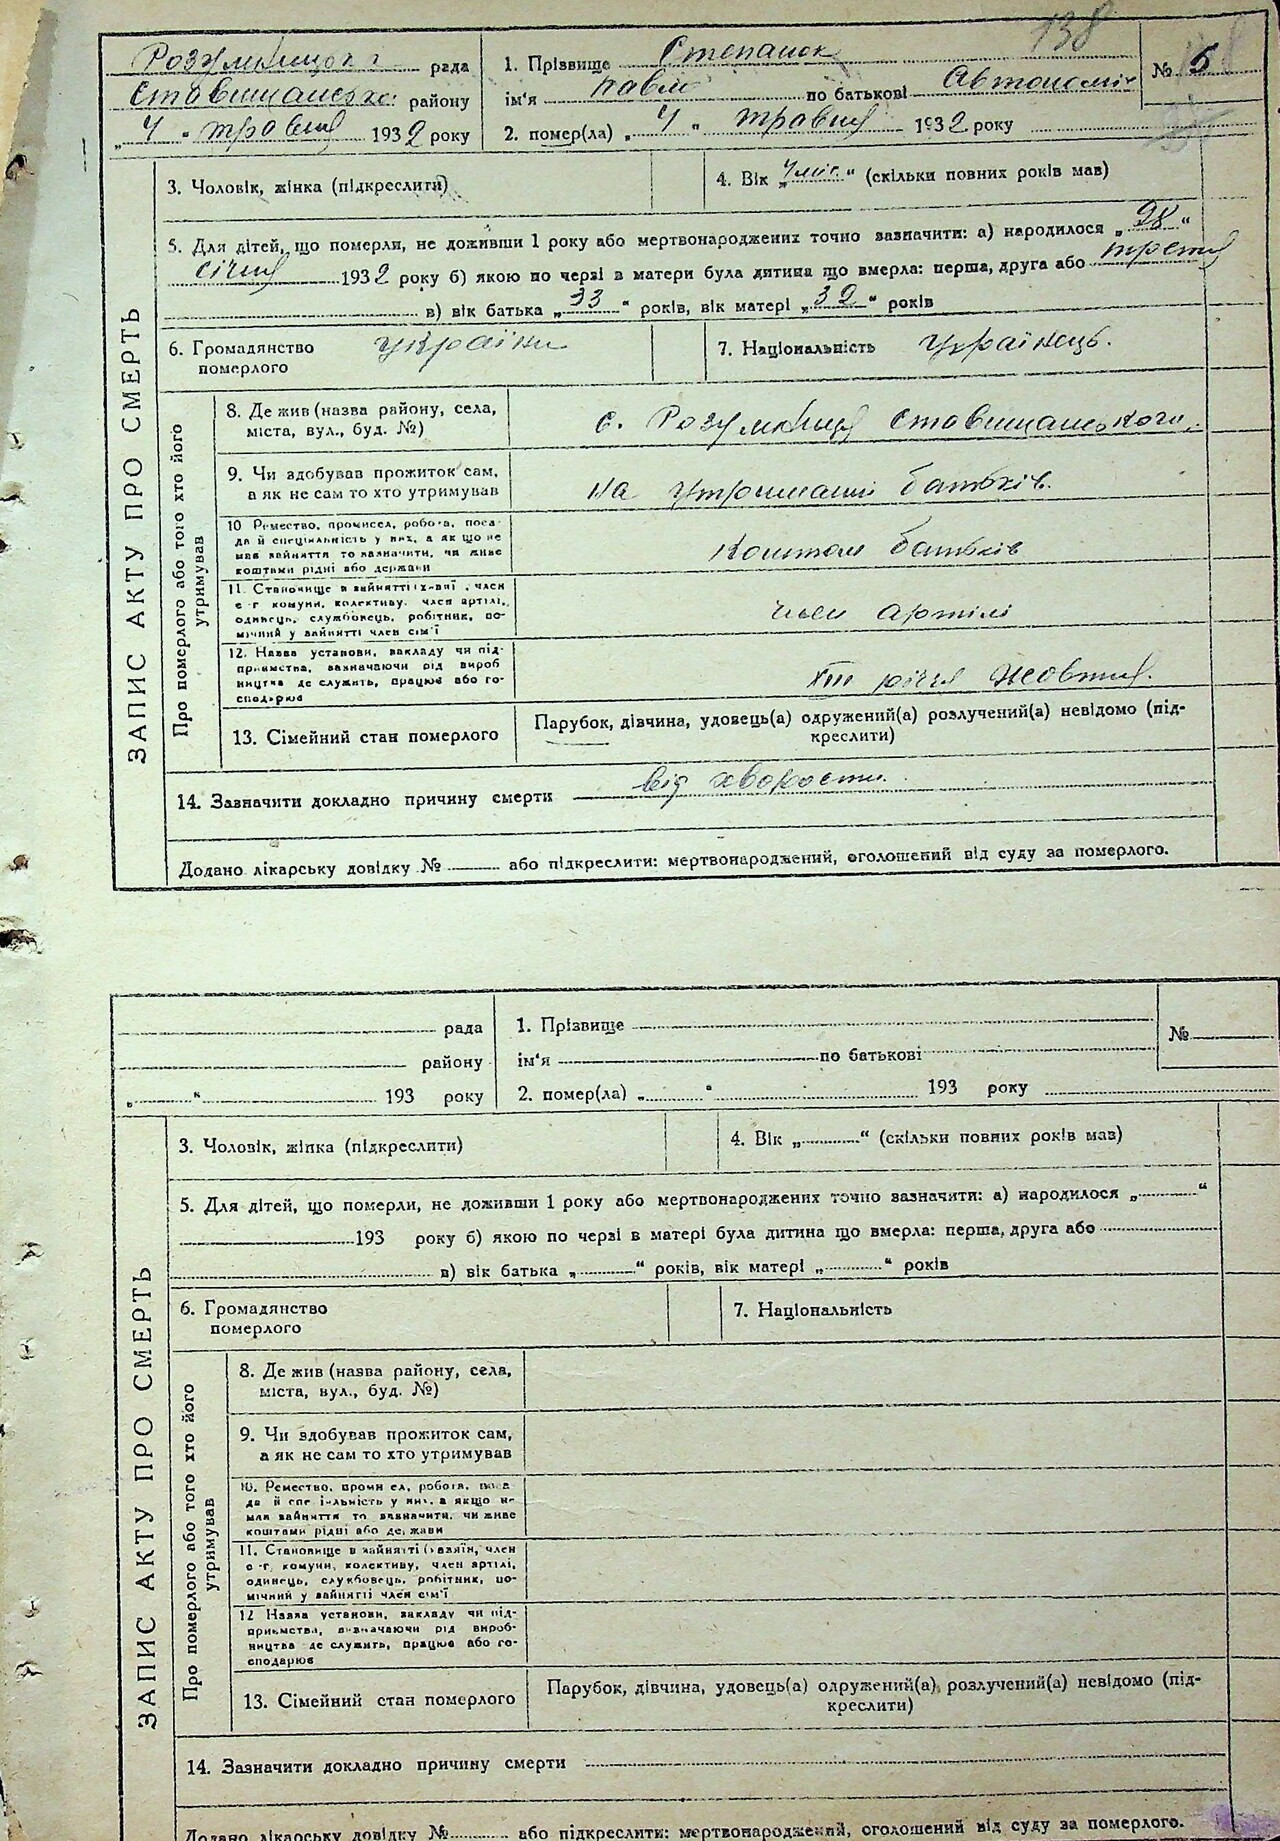 138
Розумницька рада
Ставищанського району
„4“ травня 1932 року
1. Прізвище Степанюк
ім‘я Павло по батькові
№ 6
2. помер(ла) „4“ травня 1932 року
3. Чоловік, жінка (підкреслити)
4. Вік „4 міс.“ (скільки повних років мав)
5. Для дітей, що померли, не доживши 1 року або мертвонароджених точно зазначити: а) народилося „28“
січня 1932 року б) якою по черзі в матери була дитина що вмерла: перша, друга або третя
в) вік батька „33“ років, вік матері „32“ років
6. Громадянство України
померлого
7. Національність Українець.
ЗАПИС АКТУ ПРО СМЕРТЬ
Про померлого або того хто його
утримував
8. Де жив (назва району, села,
міста, вул., буд. №)
с. Розумниця Ставищанського
9. Чи здобував прожиток сам,
а як не сам то хто утримував
на утриманні батьків.
10 Ремество, промисел, робота, поса-
да й спеціяльність у них, а як що не
мав зайняття то зазначити, чи живе
коштами рідні або держави
Коштом батьків
11. Становище в зайнятті член
с-г комуни, колективу, член артілі,
одинець, службовець, робітник, по-
мічний у зайнятті член сім‘ї
член артілі
12. Назва установи, закладу чи під-
приємства, зазначаючи рід вироб
ництва де служить, працює або го-
сподарює
XIII річчя Жовтня.
13. Сімейний стан померлого
Парубок, дівчина, удовець(а) одружений(а) розлучений(а) невідомо (під-
креслити)
14. Зазначити докладно причину смерти від хворости.
Додано лікарську довідку № або підкреслити: мертвонароджений, оголошений від суду за померлого.
рада
району
„ “ 193 року
1. Прізвище
ім‘я по батькові
№
2. помер(ла) „ “ 193 року
3. Чоловік, жінка (підкреслити)
4. Вік „ “ (скільки повних років мав)
5. Для дітей, що померли, не доживши 1 року або мертвонароджених точно зазначити: а) народилося „ “
193 року б) якою по черзі в матері була дитина що вмерла: перша, друга або
в) вік батька „ “ років, вік матері „ “ років
6. Громадянство
померлого
7. Національність
ЗАПИС АКТУ ПРО СМЕРТЬ
Про померлого або того хто його
утримував
8. Де жив (назва району, села,
міста, вул., буд. №)
9. Чи здобував прожиток сам,
а як не сам то хто утримував
10. Ремество, промисел, робота, поса-
да й спеціяльність у них, а якщо не
мав зайняття то зазначити, чи живе
коштами рідні або держави
11. Становище в зайнятті (хазяїн, член
с-г. комуни, колективу, член артілі,
одинець, службовець, робітник, по-
мічний у зайнятті член сім‘ї
12 Назва установи, закладу чи під-
приємства, зазначаючи рід вироб-
ництва де служить, працює або го-
сподарює
13. Сімейний стан померлого
Парубок, дівчина, удовець(а) одружений(а), розлучений(а) невідомо (під-
креслити)
14. Зазначити докладно причину смерти
Додано лікарську довідку № або підкреслити: мертвонароджений, оголошений від суду за померлого.